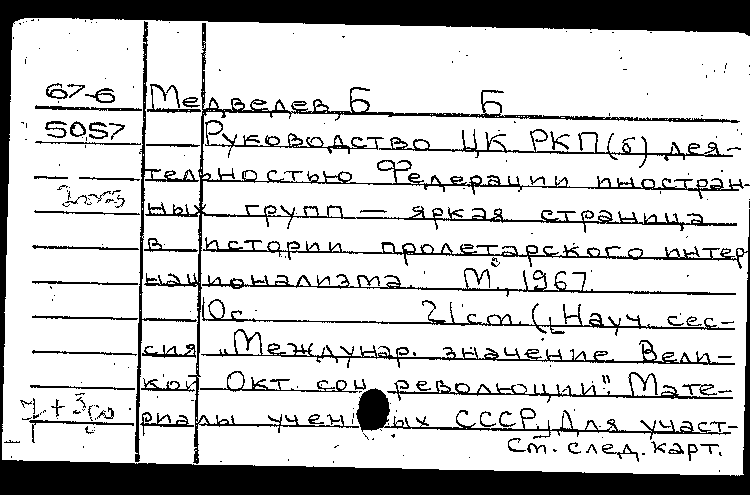 67-6 Медведев, Б Б
5057 Руководство ЦК РКП(б) дея-
тельностью Федерации иностран-
ных групп — яркая страница
в истории пролетарского интер
национализма. М., 1967.
10с. 21 cm. ([Науч. сес-
сия „Междунар. значение Вели-
кой Окт. соц революции". Мате-
риалы ученых СССР.] Для участ-
Ст. след. карт.